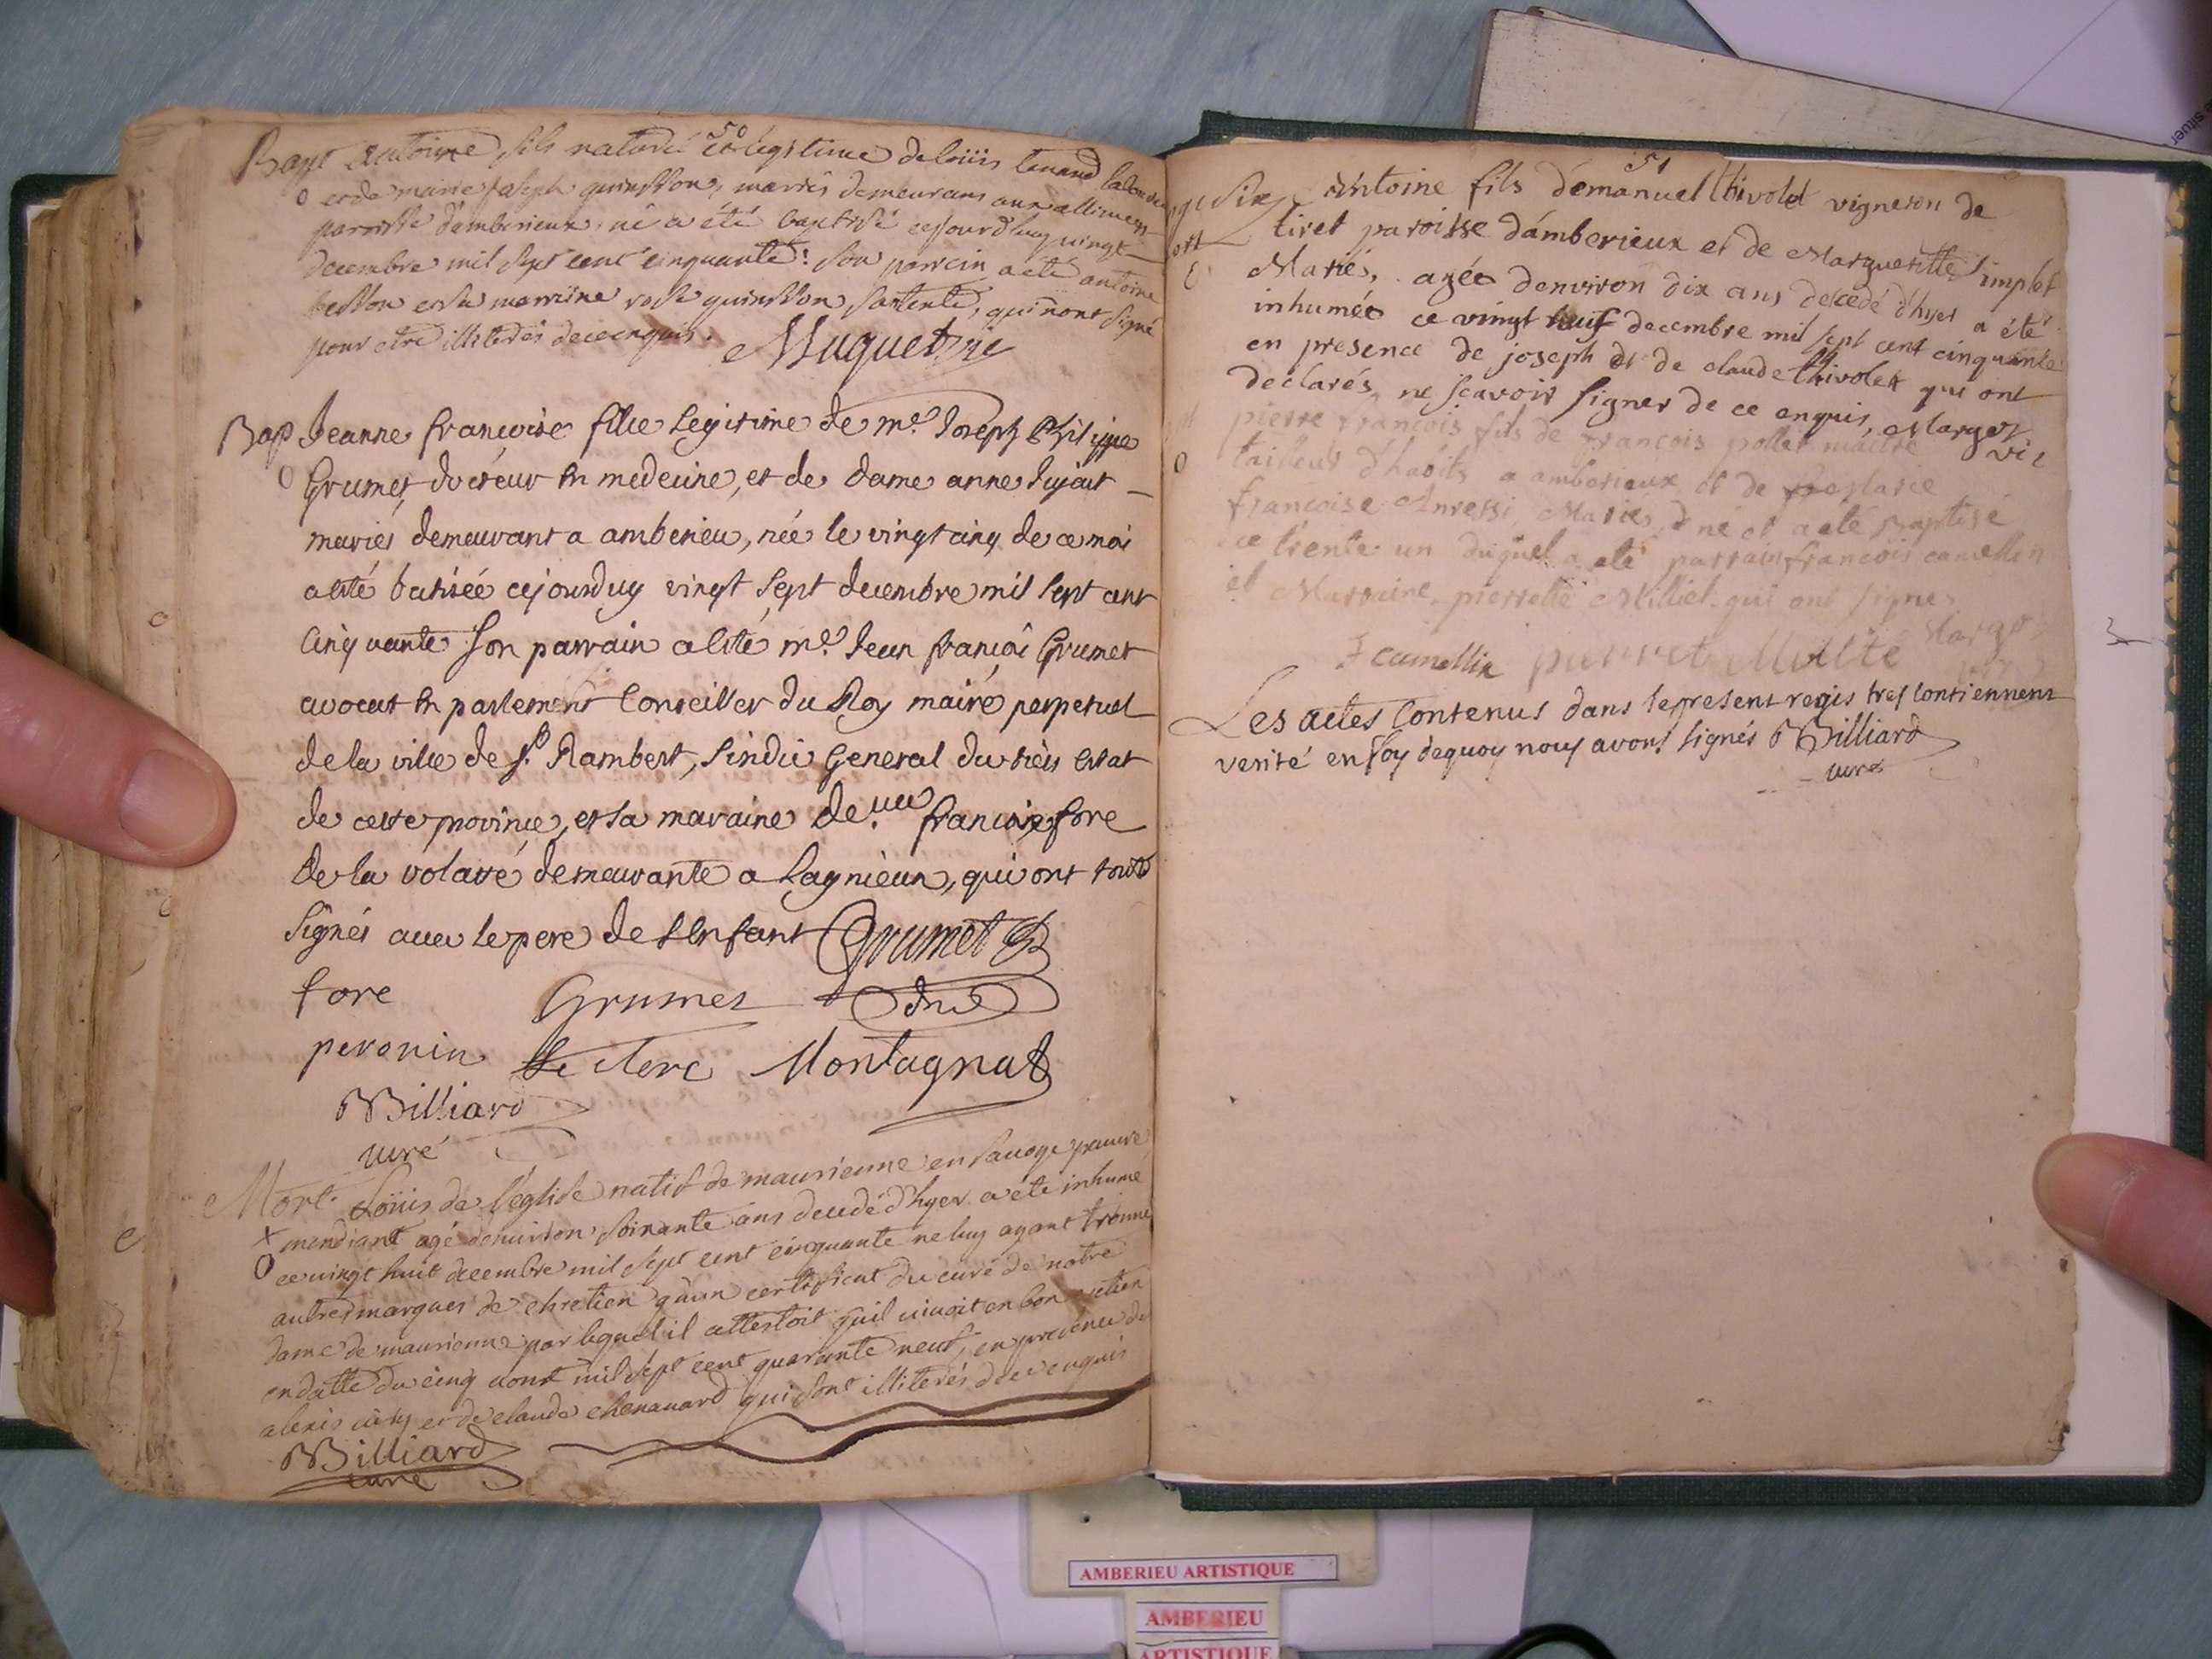 50
Bapt Antoine, fils naturel et légitime de loüis tenand laboureur
et de marie joseph quinsson, mariés demeurans aux allimens
paroisse d'amberieux, né a été baptisé cejourdhuy vingt
decembre mil sept cent cinquante: son parrein a été antoine
besson et sa marrine quinsson, sa tente, qui nont signé
pour etre illiterés de ce enquis. Muguet vic
Bap Jeanne françoise fille legitime de me. Joseph Philippe
Grumet docteur en medecine, et de dame anne Dujat
mariés demeurant a amberieu, née le vingt cinq de ce moi
a été batisée cejourduy vingt sept decembre mil sept cent
cinquante son parrain a été me. Jean françoi Grumet
avocat en parlement Conseiller du Roy maire perpetuel
de la ville de st. Rambert, sindic General du tiers estat
de cette province, et sa maraine de.lle françoise fore
de la volatié demeurante a Lagnieux, qui ont tout
signés avec le pere de l'enfant Grumet
fore Grumet
peronin Le clerc Montagnat
Billiard
curé
Mort. Loüis de l'église natif de maurienne en savoye pauvre
mendiant agé denuiron soixante ans decedé d'hyer a été inhumé
ce vingt huit decembre mil sept cent cinquante ne luy ayant trouvé
autres marques de chretien qu'un certificat du curé de notre
dame de maurienne par lequel il attestoit qu'il vivoit en bon
en datte du cinq aoust mil sept cent quarante neuf, en presence de
alexis et de claude chenavard qui sont illiterés de ce enquis
Billiard
curé
51
Antoine fils d'émanuel thivolet vigneron de
tiret paroisse d'amberieux et de Marguerítte simplet
Mariés, agée d'environ dix ans decedé d'hyer a été
inhumée ce vingt neuf decembre mil sept cent cinquante
en presence de joseph et de claude thivolet qui ont
declarés ne scavoir signer de ce enquis, Margot
vic
pierre francois fils de francois pollet maitre
tailleur d'habits a amberieux et de Marie
francoise Anressi Mariés, né et a été Baptisé
ce trente un duquel a été parrain francois camellin
et Marraine, pierrette Milliet. qui ont signes
F camellin pierrete Millié Margot
Les actes Contenus dans le present registres Contiennent
verité en foy dequoy nous avons signés Billiard
curé
AMBERIEU ARTISTIQUE
AMBERIEU
ARTISTIQUE